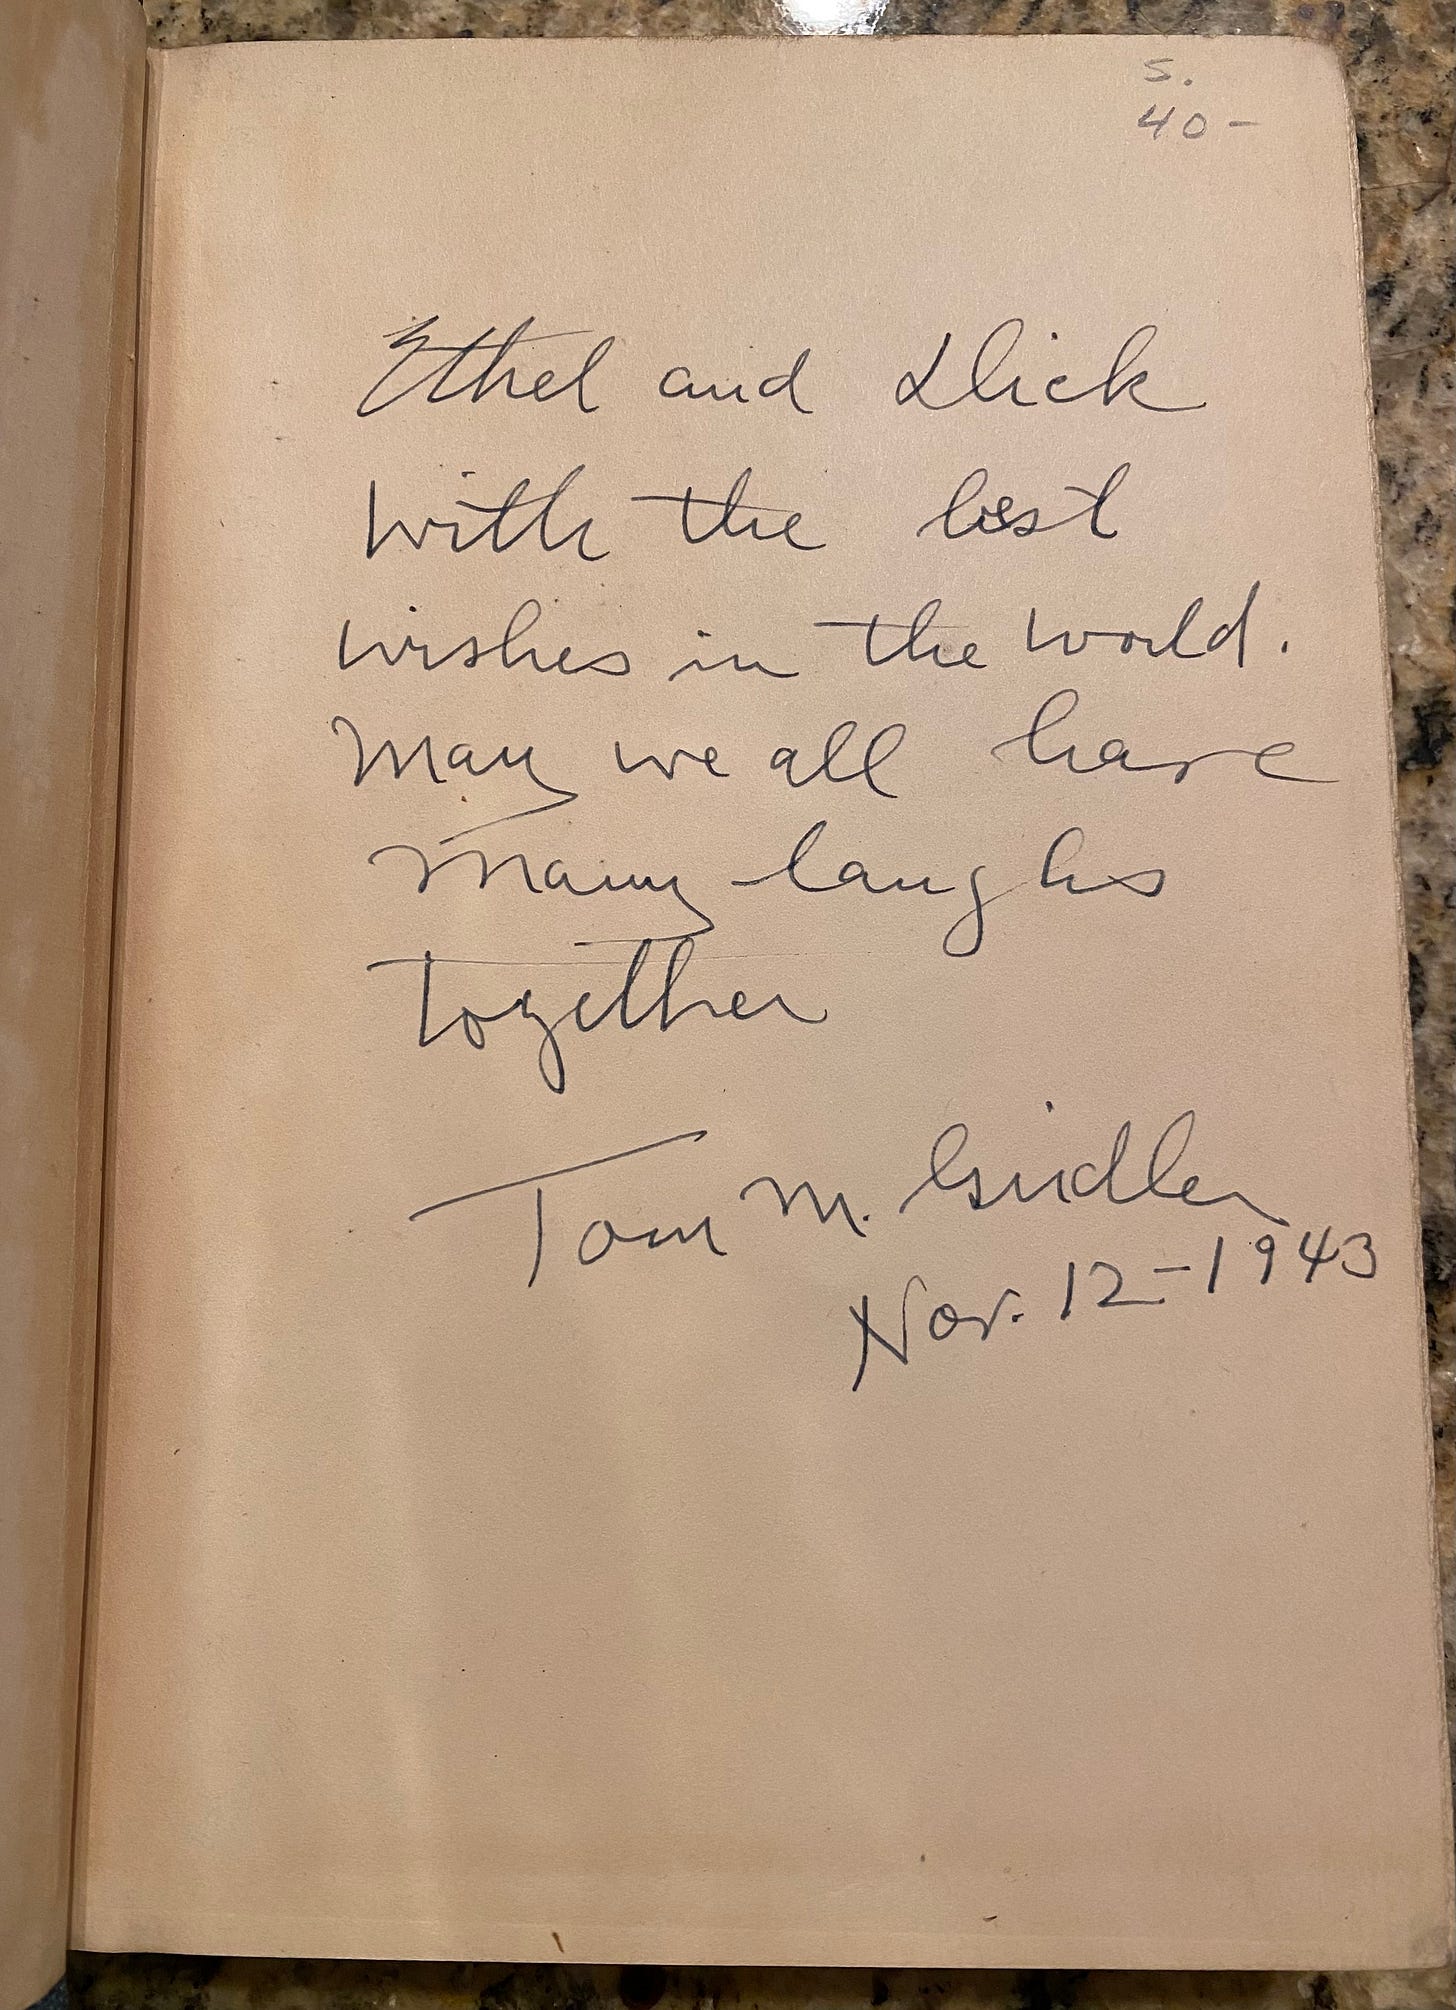 S.
40-
Ethel and Dick
with the best
wishes in the world.
May we all have
many laughs
together
Tom M. Girdler
Nov. 12-1943